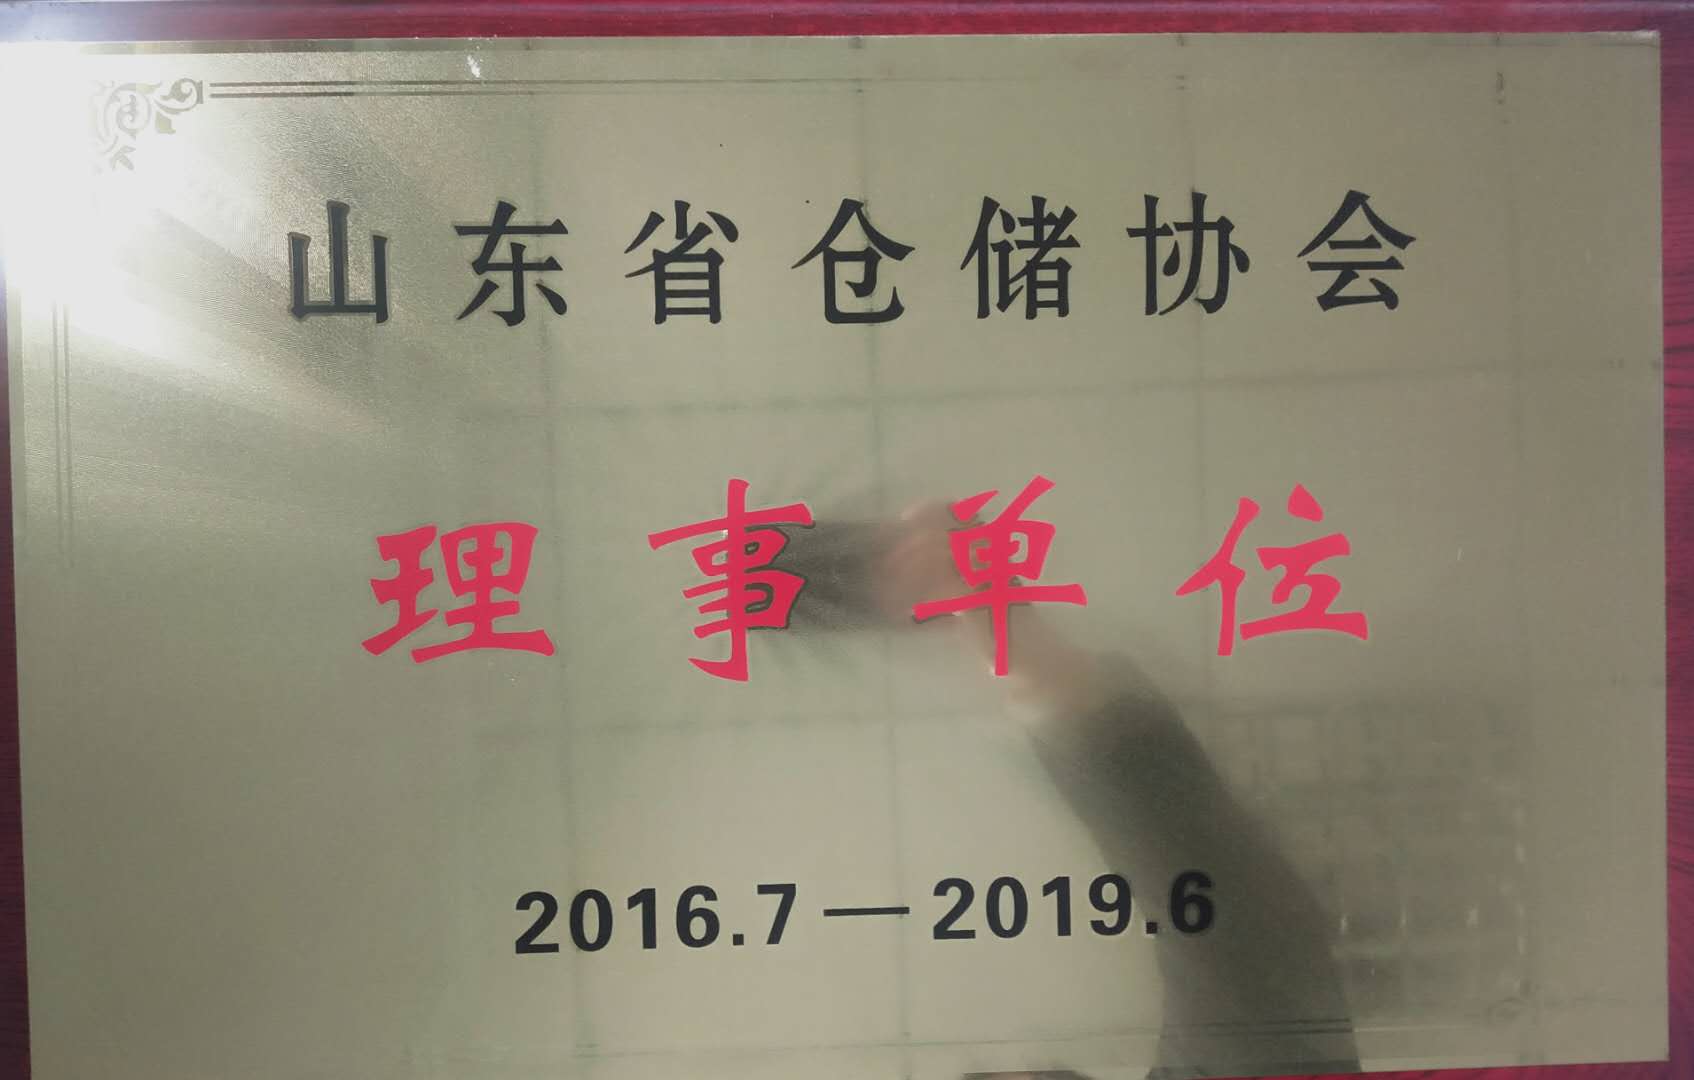 山东省仓储协会
理事单位
2016.7—2019.6